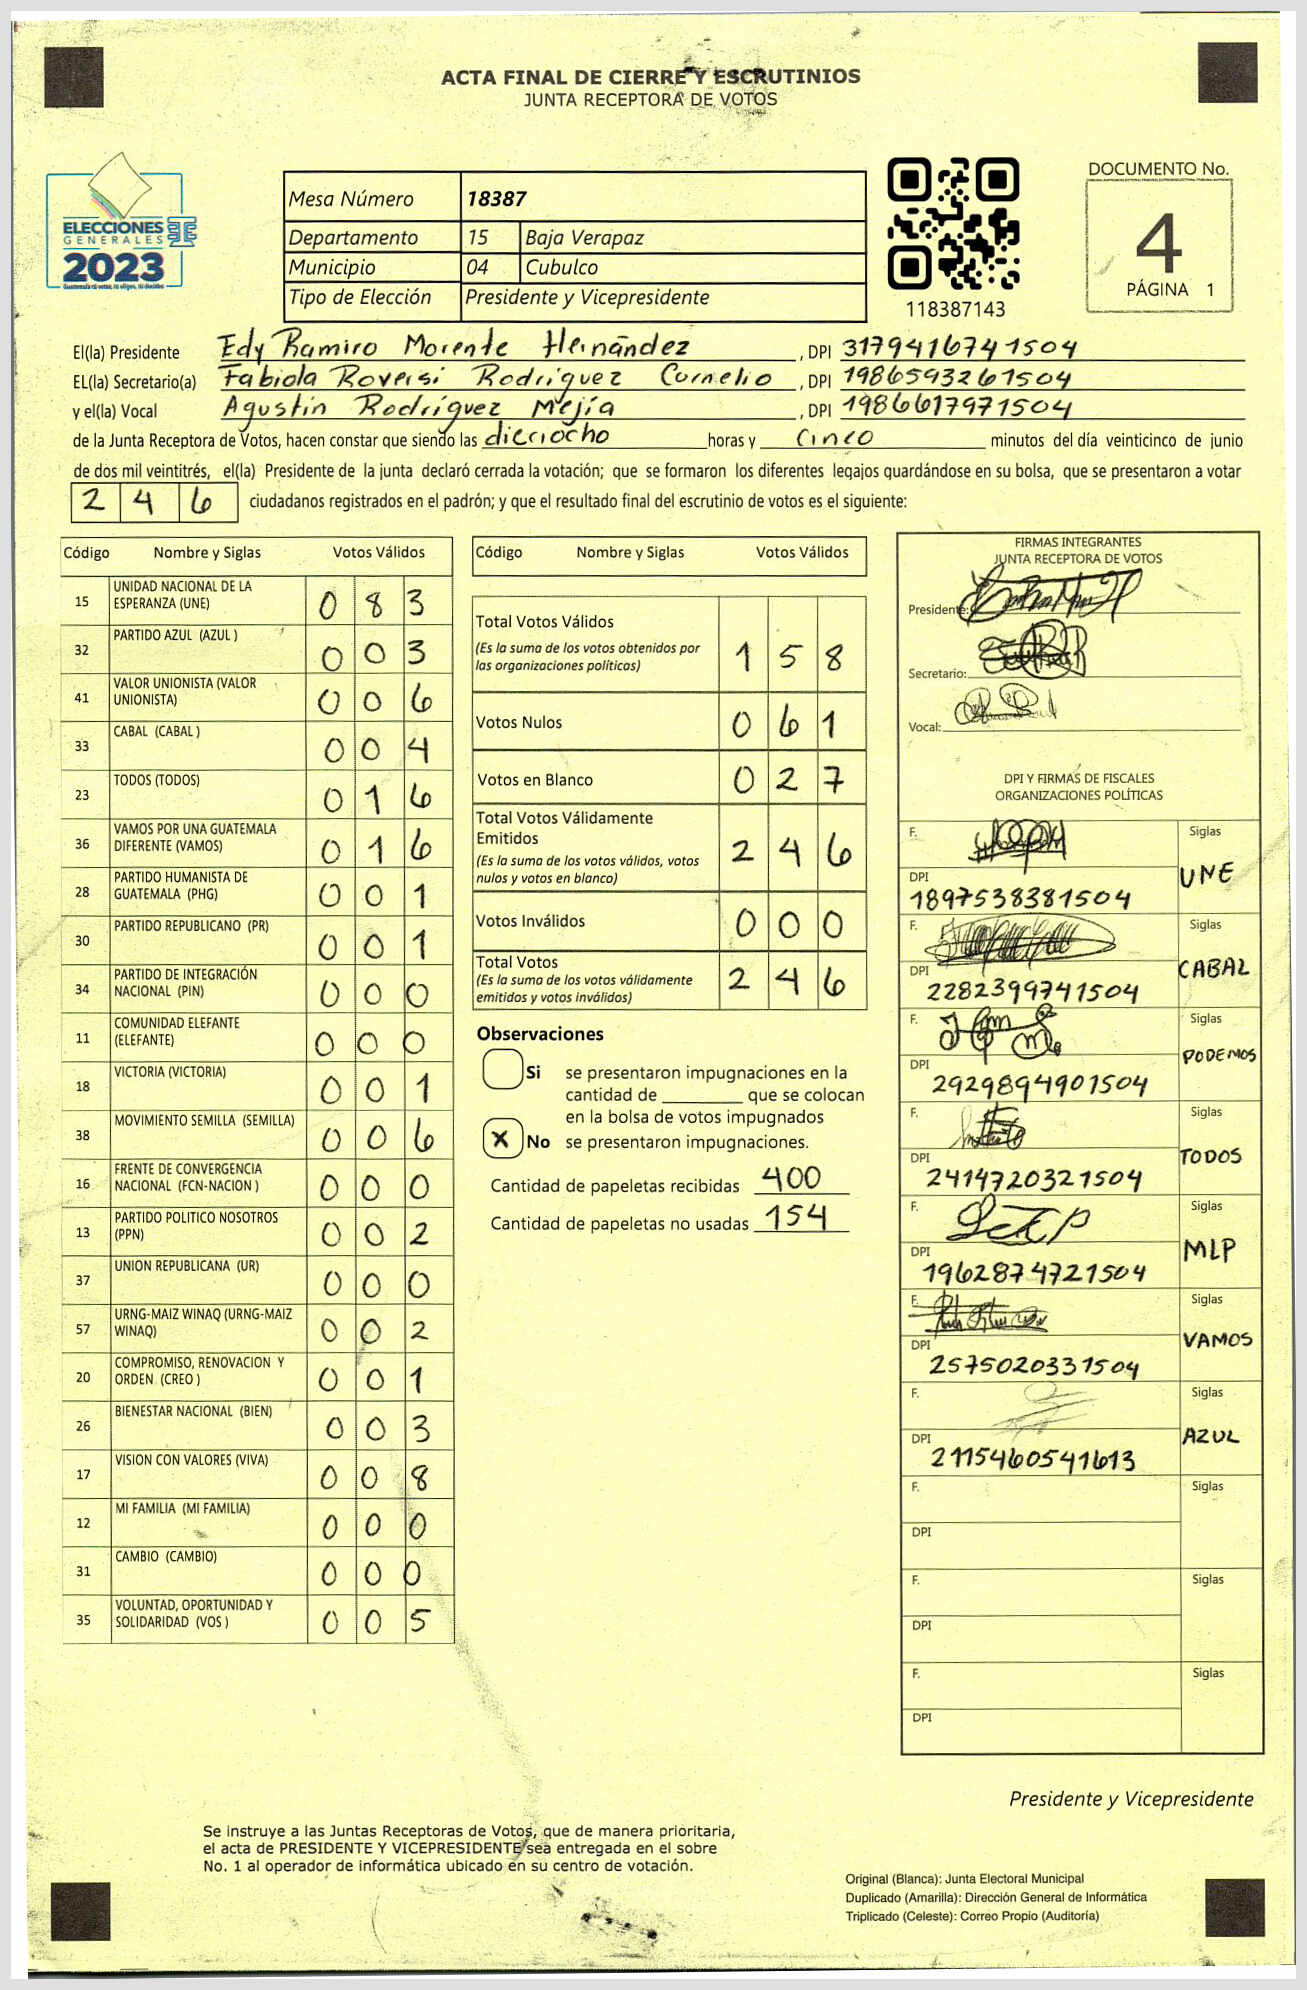 ACTA FINAL DE CIERRE Y ESCRUTINIOS
JUNTA RECEPTORA DE VOTOS
ELECCIONES
GENERALES
2023
Mesa Número 18387
Departamento 15 Baja Verapaz
Municipio 04 Cubulco
Tipo de Elección Presidente y Vicepresidente
118387143
DOCUMENTO No.
4
PÁGINA 1
El(la) Presidente Edy Ramiro Morente Hernández, DPI 3179416741504
EL(la) Secretario(a) Fabiola Roversi Rodríguez Cornelio, DPI 1986593261504
y el(la) Vocal Agustín Rodríguez Mejía, DPI 1986617971504
de la Junta Receptora de Votos, hacen constar que siendo las dieciocho horas y cinco minutos del día veinticinco de junio
de dos mil veintitrés, el(la) Presidente de la junta declaró cerrada la votación; que se formaron los diferentes legajos guardándose en su bolsa, que se presentaron a votar
246 ciudadanos registrados en el padrón; y que el resultado final del escrutinio de votos es el siguiente:
Código Nombre y Siglas Votos Válidos
15 UNIDAD NACIONAL DE LA ESPERANZA (UNE) 083
32 PARTIDO AZUL (AZUL ) 003
41 VALOR UNIONISTA (VALOR UNIONISTA) 006
33 CABAL (CABAL ) 004
23 TODOS (TODOS) 016
36 VAMOS POR UNA GUATEMALA DIFERENTE (VAMOS) 016
28 PARTIDO HUMANISTA DE GUATEMALA (PHG) 001
30 PARTIDO REPUBLICANO (PR) 001
34 PARTIDO DE INTEGRACIÓN NACIONAL (PIN) 000
11 COMUNIDAD ELEFANTE (ELEFANTE) 000
18 VICTORIA (VICTORIA) 001
38 MOVIMIENTO SEMILLA (SEMILLA) 006
16 FRENTE DE CONVERGENCIA NACIONAL (FCN-NACION ) 000
13 PARTIDO POLITICO NOSOTROS (PPN) 002
37 UNION REPUBLICANA (UR) 000
57 URNG-MAIZ WINAQ (URNG-MAIZ WINAQ) 002
20 COMPROMISO, RENOVACION Y ORDEN (CREO ) 001
26 BIENESTAR NACIONAL (BIEN) 003
17 VISION CON VALORES (VIVA) 008
12 MI FAMILIA (MI FAMILIA) 000
31 CAMBIO (CAMBIO) 000
35 VOLUNTAD, OPORTUNIDAD Y SOLIDARIDAD (VOS ) 005
Código Nombre y Siglas Votos Válidos
Total Votos Válidos 158
(Es la suma de los votos obtenidos por
las organizaciones políticas)
Votos Nulos 061
Votos en Blanco 027
Total Votos Válidamente
Emitidos 246
(Es la suma de los votos válidos, votos
nulos y votos en blanco)
Votos Inválidos 000
Total Votos 246
(Es la suma de los votos válidamente
emitidos y votos inválidos)
Observaciones
Si se presentaron impugnaciones en la
cantidad de ________ que se colocan
en la bolsa de votos impugnados
X No se presentaron impugnaciones.
Cantidad de papeletas recibidas 400
Cantidad de papeletas no usadas 154
FIRMAS INTEGRANTES
JUNTA RECEPTORA DE VOTOS
Presidente:
Secretario:
Vocal:
DPI Y FIRMAS DE FISCALES
ORGANIZACIONES POLÍTICAS
F. Siglas UNE
DPI 1897538381504
F. Siglas CABAL
DPI 2282399741504
F. Siglas PODEMOS
DPI 2929894901504
F. Siglas TODOS
DPI 2414720321504
F. Siglas MLP
DPI 1962874721504
F. Siglas VAMOS
DPI 2575020331504
F. Siglas AZUL
DPI 2115460541613
F. Siglas
DPI
F. Siglas
DPI
F. Siglas
DPI
Presidente y Vicepresidente
Se instruye a las Juntas Receptoras de Votos, que de manera prioritaria,
el acta de PRESIDENTE Y VICEPRESIDENTE sea entregada en el sobre
No. 1 al operador de informática ubicado en su centro de votación.
Original (Blanca): Junta Electoral Municipal
Duplicado (Amarilla): Dirección General de Informática
Triplicado (Celeste): Correo Propio (Auditoría)